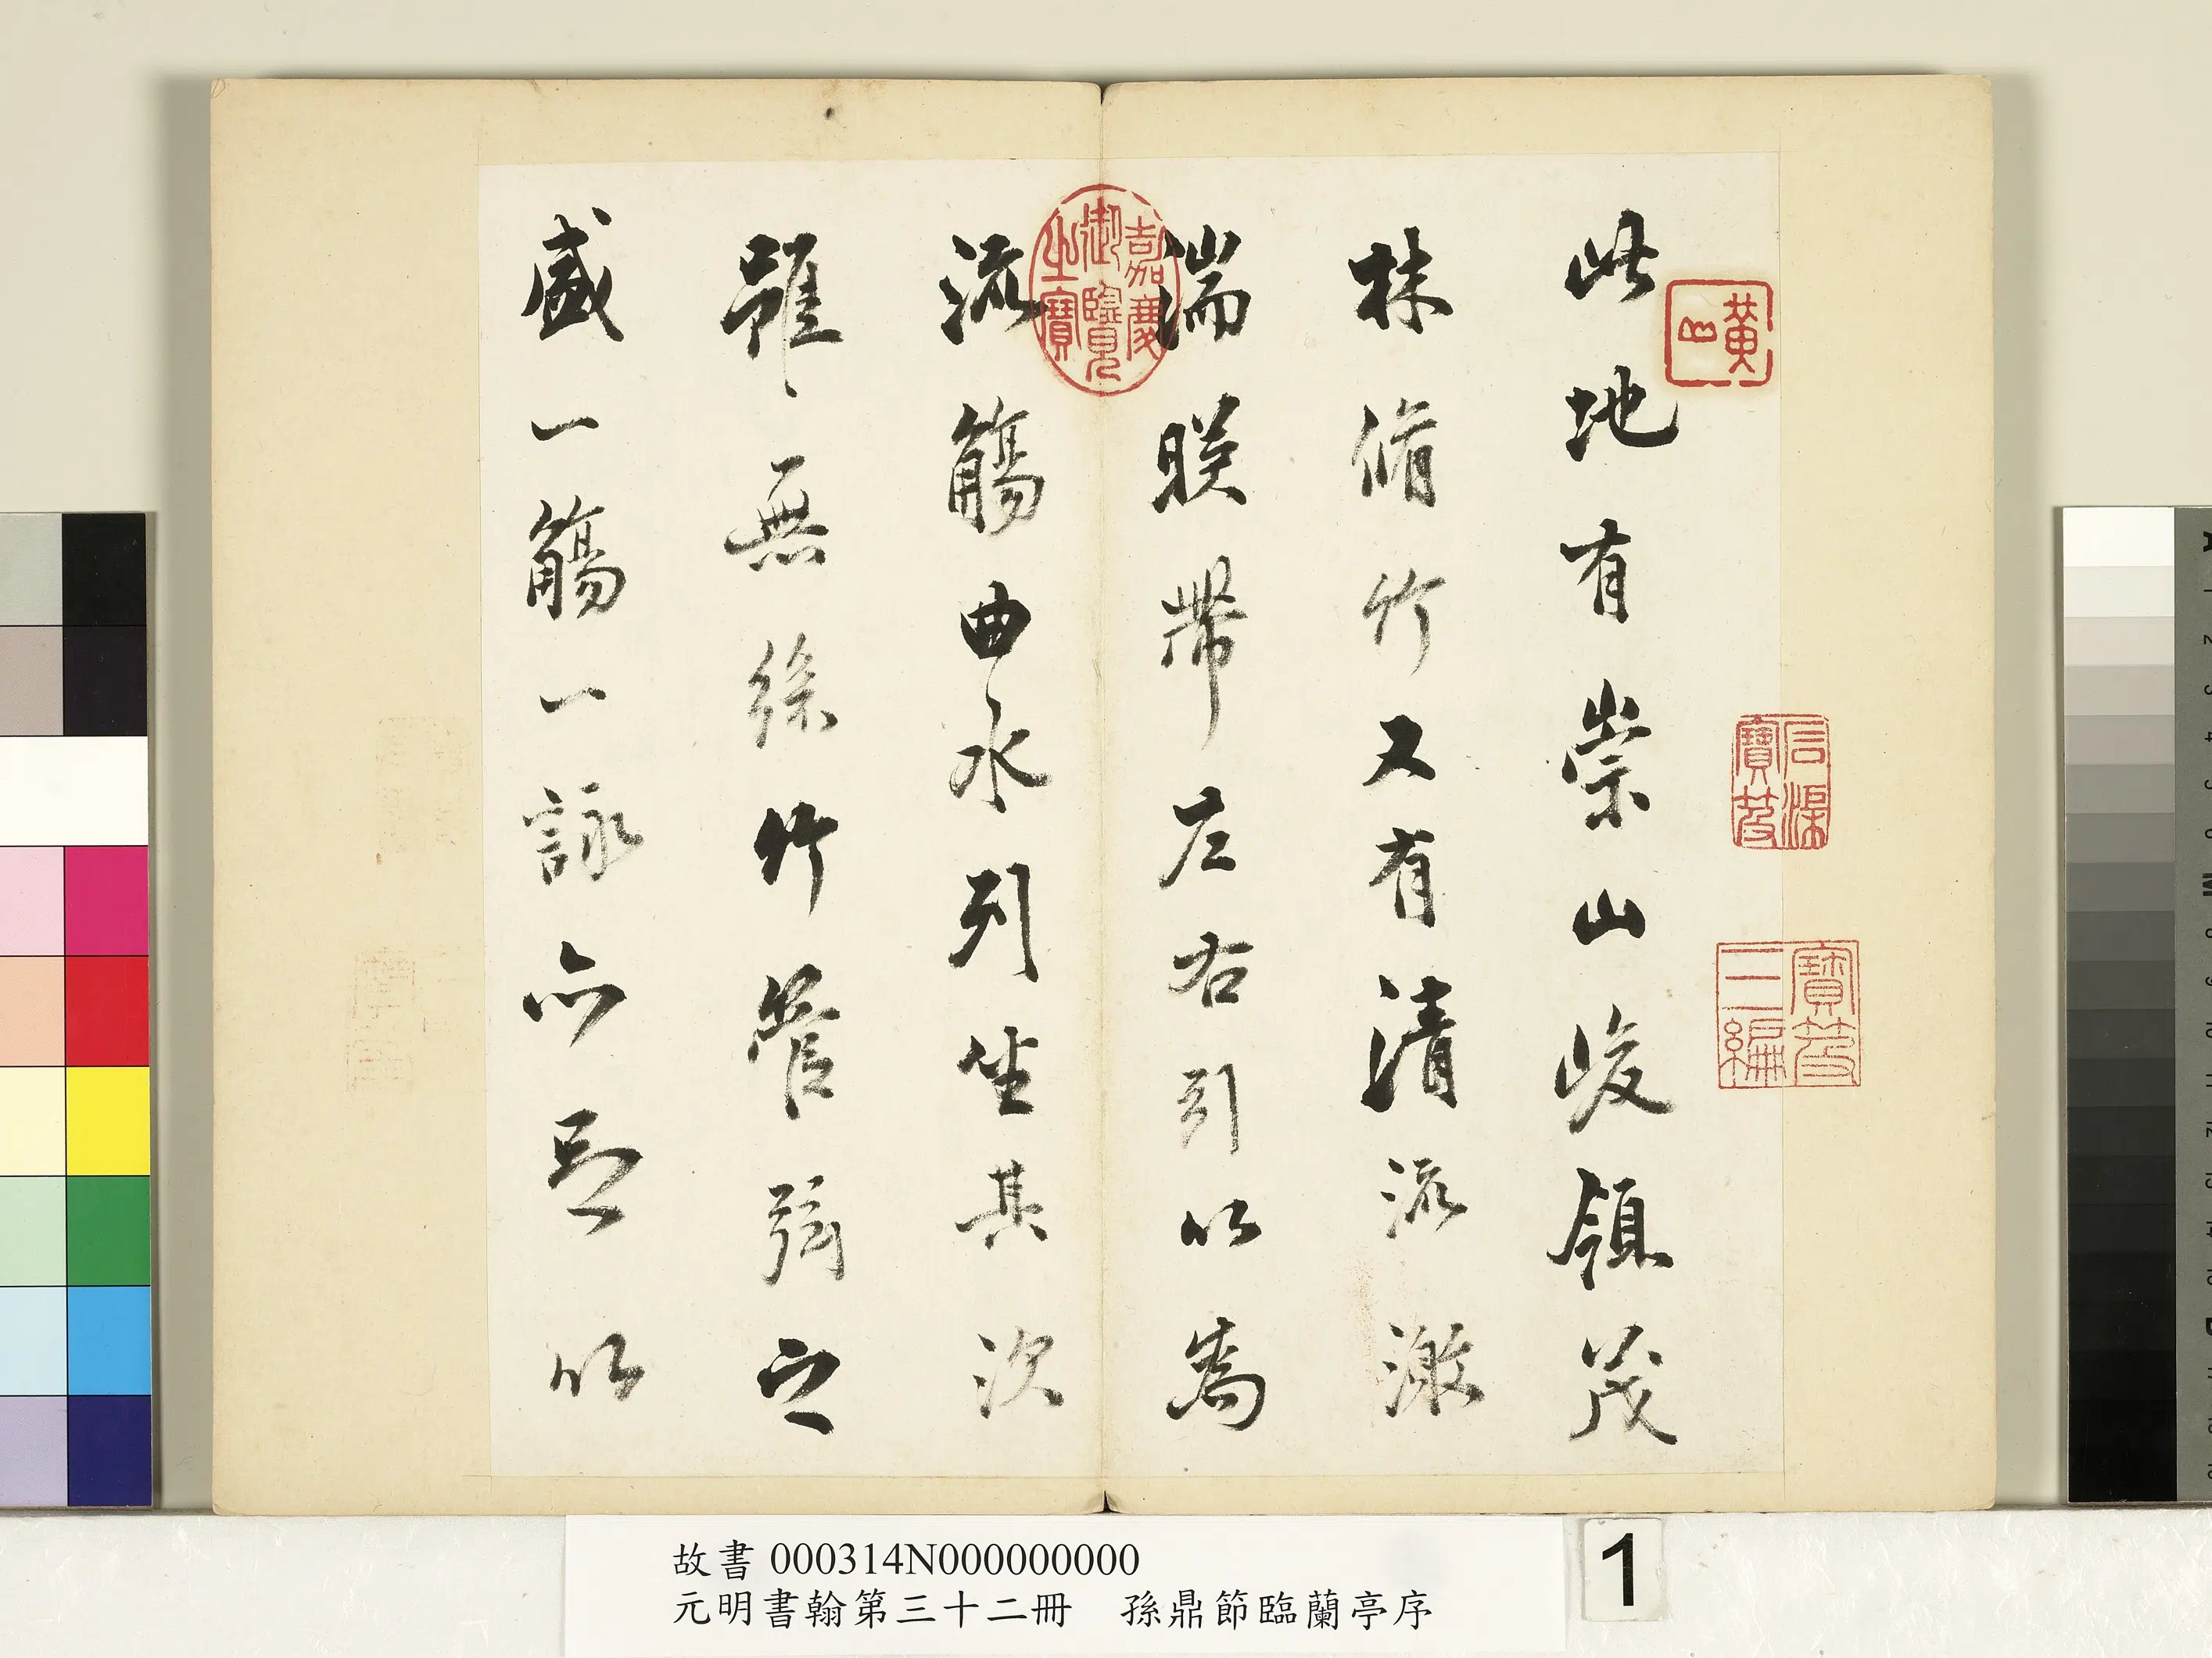 此地有崇山峻領茂
林脩竹又有清流激
湍暎帶左右引以為
流觴曲水列坐其次
雖無絲竹管弦之
盛一觴一詠亦足以
黃
嘉慶
御覽
之寶
石渠
寶笈
寶笈
三編
故書 000314N000000000
元明書翰第三十二冊 孫鼎節臨蘭亭序
1